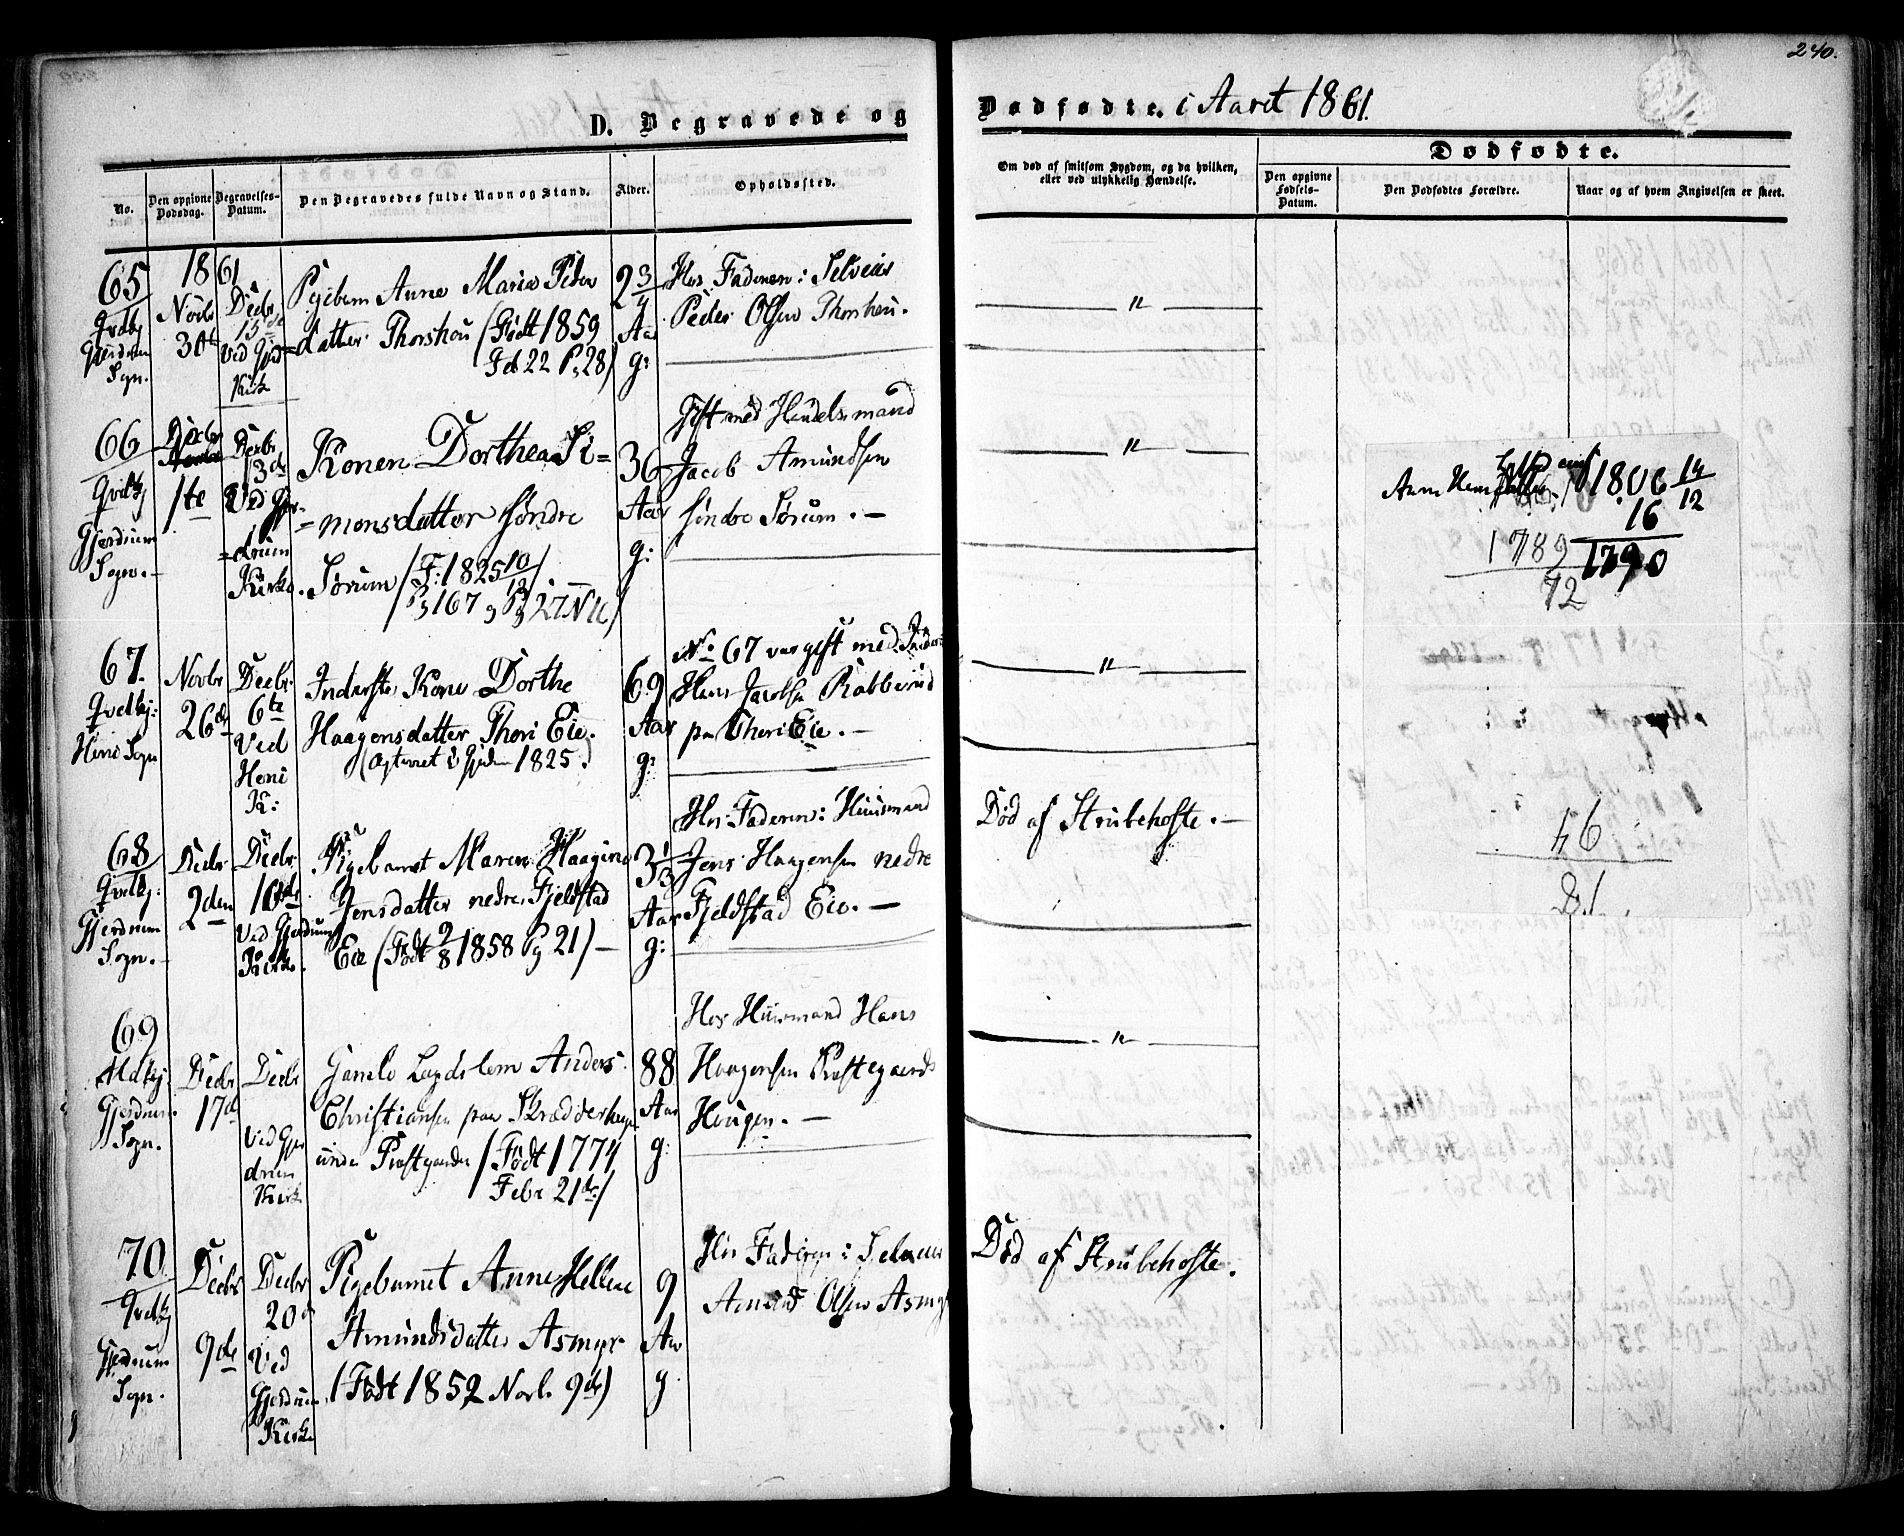 240.
D. Begravede og Dødfødte. i Aaret 1861.
No.
Den opgivne Dødsdag.
Begravelses-Datum.
Den Begravedes fulde Navn og Stand.
Alder.
Opholdssted.
Om død af smitsom Sygdom, og da hvilken, eller ved ulykkelig Hændelse.
Dødfødte.
Den opgivne Fødsels-Datum.
Den Dødfødtes Forældre.
Naar og af hvem Angivelsen er skeet.
65
Qvdkj
Gjerdrum
Sogn.
1861
Novbr
30te
Decbr
15de
Ved Gjerd=
Kirk
Pigebarn Anne Marie Peders
datter Thorshou (Født 1859
Feb 22 Pg 28)
2 3/4
Aar
g:
Hos Faderen: Selveier
Peder Olsen Thorshou.
"
66
Qvdkj
Gjerdrum
Sogn.-
Decbr
1te
Decbr
13de
Ved Gjer-
=drum
Kirke.
Konen Dorthea Si=
=monsdatter søndre
Sørum (F: 1825 10/12)
Pg 167 g Pg 27 N 10)
36
Aar
g:
Gift med Handelsmand
Jacob Amundsen
søndre Sørum. -
"
67.
Qvdkj:
Heni Sogn
Novbr
26de
Decbr.
6te
Ved
Heni
K:
Inderste Kone Dorthe
Haagensdatter Thori Eie.
(Egteviet i Gjerdrum 1825.)
69
Aar
g:
No 67 var gift med Inderst
Hans Jacobsen Robberud
paa Thori Eie. -
"
68
Qvdkj:
Gjerdrum
Sogn.-
Decbr
2den
Decbr
16de
Ved Gjerdrum
Kirke.
Pigebarnet Maren Haagine
Jensdatter nedre Fjeldstad
Eie (Født 2/8 1858 Pg 21) -
3 1/3
Aar
g:
Hos Faderen: Huusmand
Jens Haagensen nedre
Fjeldstad Eie. -
Død af Strubehoste. -
69
Mdkj
Gjerdrum.
Sogn.
Decbr
17de
Decbr
Ved Gjer
drum
Kirk
Gamle Lægdslem Anders
Christiansen paa Skrædderhaugen
under Præstgaarden (Født 1774
Febr 21de)
88
Aar
g:
Hos Huusmand Hans
Haagensen Præstegaards
Hougen. -
"
70.
Qvdkj
Gjerdrum
Sogn.
Decbr
9de
Decbr
20de
Ved
Gjerdrum
Kirke
Pigebarnet Anne Hellene
Amundsdatter Asmyr
(Født 1852 Novb. 9de)
9
Aar
g.
Hos Faderen: Selveier
Amund Olsen Asmyr
Død af Strubehoste.
1806 14/12
16
1790
1789
72